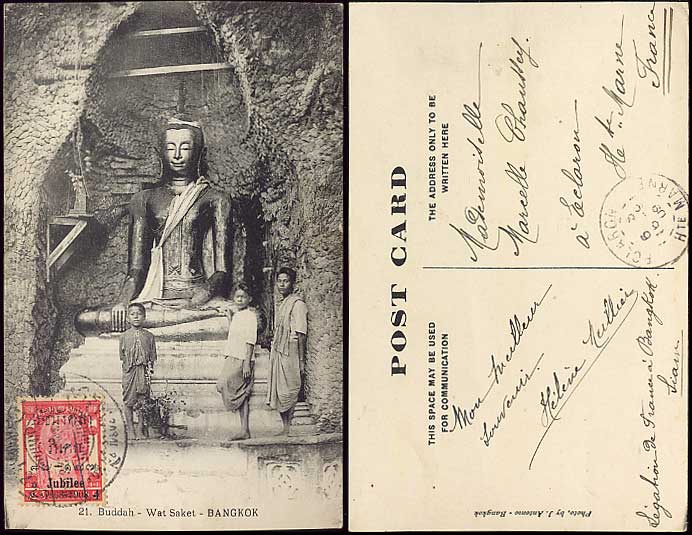 Jubilee
1868-1908
21. Buddah - Wat Saket - BANGKOK
POST CARD
THE ADDRESS ONLY TO BE
WRITTEN HERE
Mademoiselle
Marcelle Chaussey.
à Eclaron
Hte Marne
France
ECLARON
HTE MARNE
THIS SPACE MAY BE USED
FOR COMMUNICATION
Mon meilleur
souvenir.
Hélène
Légation de France à Bangkok
Siam
Photo, by J. Antonio - Bangkok